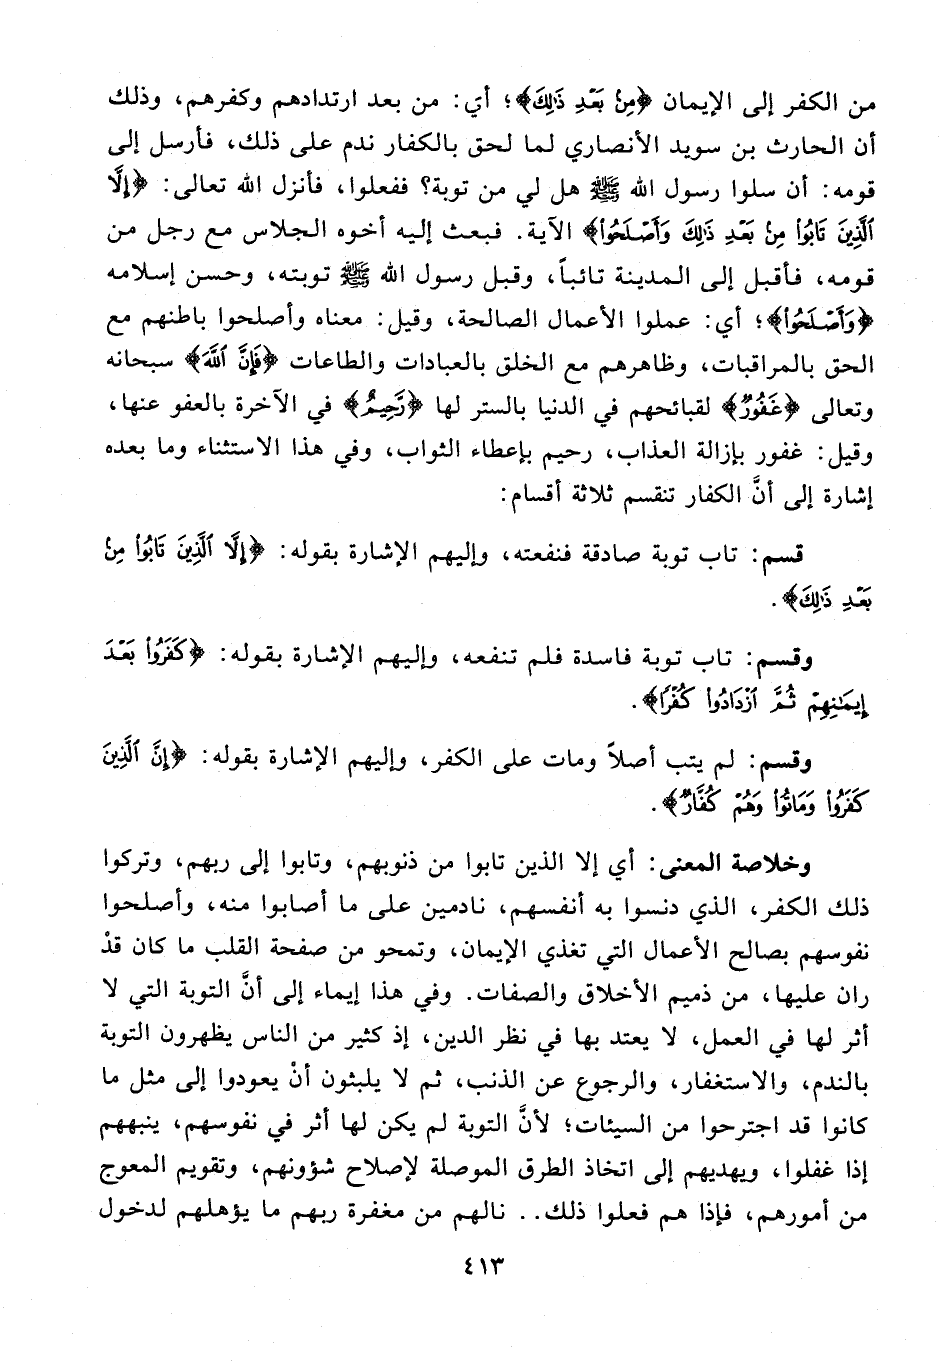 من الكفر إلى الإيمان ﴿مِنْ بَعْدِ ذَٰلِكَ﴾؛ أي: من بعد ارتدادهم وكفرهم، وذلك
أن الحارث بن سويد الأنصاري لما لحق بالكفار ندم على ذلك، فأرسل إلى
قومه: أن سلوا رسول الله ﷺ هل لي من توبة؟ ففعلوا، فأنزل الله تعالى: ﴿إِلَّا
ٱلَّذِينَ تَابُوا۟ مِنْ بَعْدِ ذَٰلِكَ وَأَصْلَحُوا۟﴾ الآية. فبعث إليه أخوه الجلاس مع رجل من
قومه، فأقبل إلى المدينة تائباً، وقبل رسول الله ﷺ توبته، وحسن إسلامه
﴿وَأَصْلَحُوا۟﴾؛ أي: عملوا الأعمال الصالحة، وقيل: معناه وأصلحوا باطنهم مع
الحق بالمراقبات، وظاهرهم مع الخلق بالعبادات والطاعات ﴿فَإِنَّ ٱللَّهَ﴾ سبحانه
وتعالى ﴿غَفُورٌ﴾ لقبائحهم في الدنيا بالستر لها ﴿رَّحِيمٌ﴾ في الآخرة بالعفو عنها،
وقيل: غفور بإزالة العذاب، رحيم بإعطاء الثواب، وفي هذا الاستثناء وما بعده
إشارة إلى أنَّ الكفار تنقسم ثلاثة أقسام:
قسم: تاب توبة صادقة فنفعته، وإليهم الإشارة بقوله: ﴿إِلَّا ٱلَّذِينَ تَابُوا۟ مِنْ
بَعْدِ ذَٰلِكَ﴾.
وقسم: تاب توبة فاسدة فلم تنفعه، وإليهم الإشارة بقوله: ﴿كَفَرُوا۟ بَعْدَ
إِيمَٰنِهِمْ ثُمَّ ٱزْدَادُوا۟ كُفْرًا﴾.
وقسم: لم يتب أصلاً ومات على الكفر، وإليهم الإشارة بقوله: ﴿إِنَّ ٱلَّذِينَ
كَفَرُوا۟ وَمَاتُوا۟ وَهُمْ كُفَّارٌ﴾.
وخلاصة المعنى: أي إلا الذين تابوا من ذنوبهم، وتابوا إلى ربهم، وتركوا
ذلك الكفر، الذي دنسوا به أنفسهم، نادمين على ما أصابوا منه، وأصلحوا
نفوسهم بصالح الأعمال التي تغذي الإيمان، وتمحو من صفحة القلب ما كان قدْ
ران عليها، من ذميم الأخلاق والصفات. وفي هذا إيماء إلى أنَّ التوبة التي لا
أثر لها في العمل، لا يعتد بها في نظر الدين، إذ كثير من الناس يظهرون التوبة
بالندم، والاستغفار، والرجوع عن الذنب، ثم لا يلبثون أنْ يعودوا إلى مثل ما
كانوا قد اجترحوا من السيئات؛ لأنَّ التوبة لم يكن لها أثر في نفوسهم، ينبههم
إذا غفلوا، ويهديهم إلى اتخاذ الطرق الموصلة لإصلاح شؤونهم، وتقويم المعوج
من أمورهم، فإذا هم فعلوا ذلك.. نالهم من مغفرة ربهم ما يؤهلهم لدخول
٤١٣